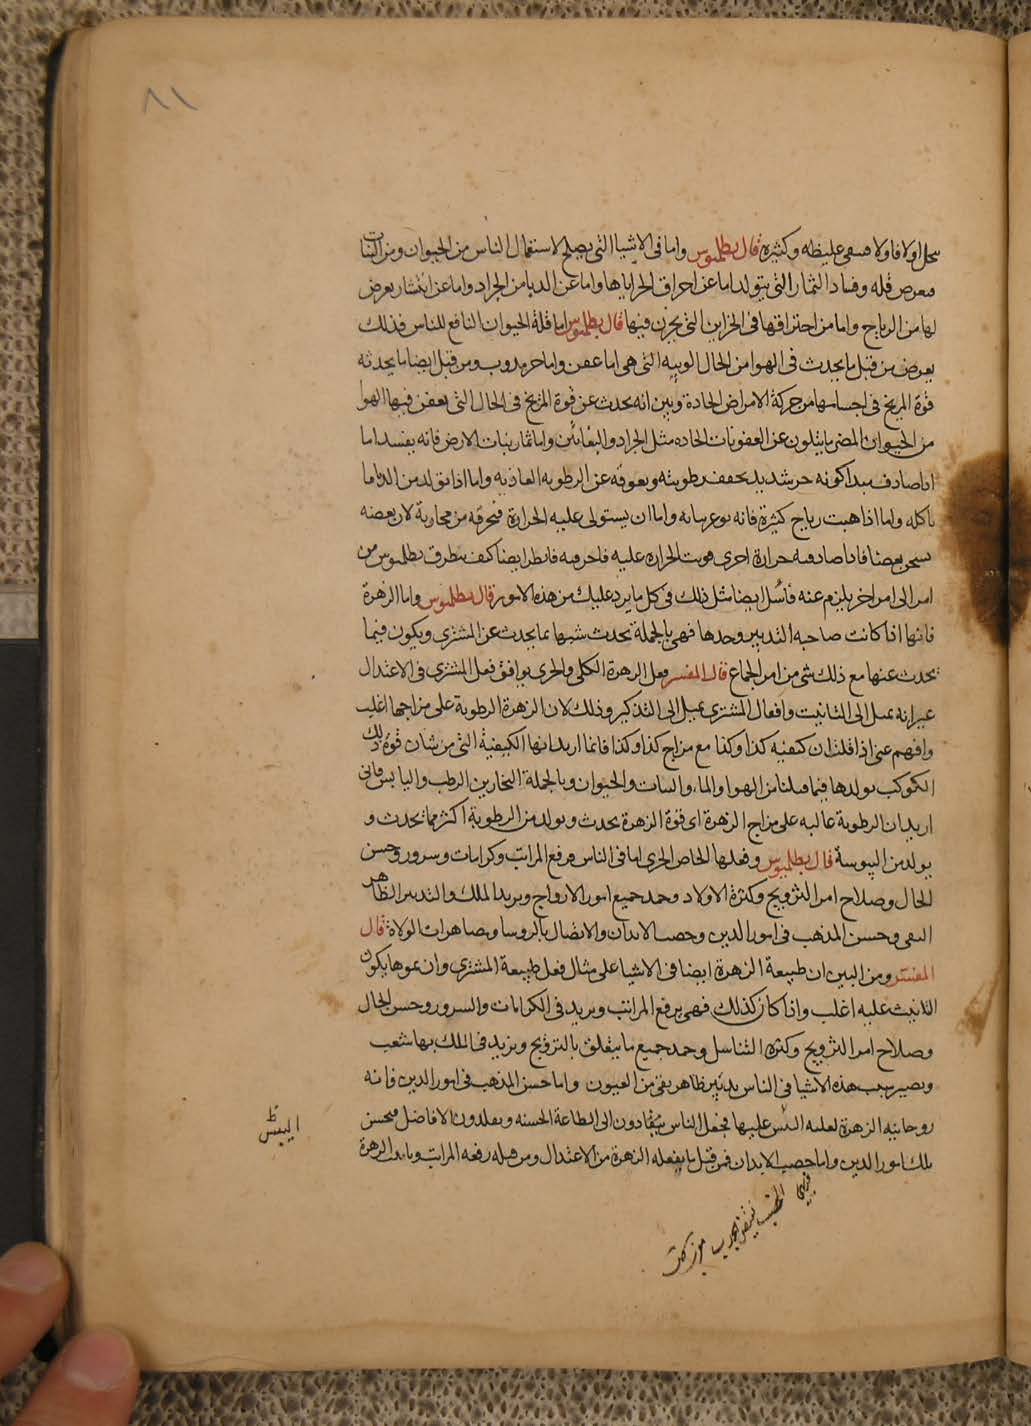 ٨١
اولا فاولا فيبقى غليظه وكثيره قال بطلميوس واما فى الاشيا التى يصلح لاستعمال الناس من الحيوان ومن النبات
فيعرض قله وفساد الثمار التى يتولد اما عن احراق الحر اياها واما عن الدبا من الجراد واما عن انتشار يعرض
لها من الرياح واما من احتراقها فى الخزاين التى يخزن فيها قال بطلميوس اما قلة الحيوان النافع للناس فذلك
يعرض من قبل ما يحدث فى الهوا من الحال الوبيه التى هى اما عفن واما حر ومن قبل ايضا ما يحدثه
قوة المريخ فى اجسامها من حركة الامراض الحادة وبين انه يحدث عن قوة المريخ فى الحال التى يعفن فيها الهوا
من الحيوان المضر ما يتكون عن العفونات الحاده مثل الجراد واما ثمار نبات الارض فانه يفسد اما
اذا صادف مبدا كونه حر شديد يجفف رطوبته ويعوقه عن الرطوبه الغاذيه واما اذا تولد من الدبا ما
ياكله واما اذا هبت رياح كثيرة فانه واما ان يستولى عليه الحرارة فتحرقه من مجاورة لان بعضه
يسخن بعضا فاذا صادفه حرارة اخرى قويت الحراره عليه فاحرقته فانظر ايضا كيف تطرق بطلميوس من
امر الى امر اخر يلزم عنه ايضا مثل ذلك فى كل ما يرد عليك من هذه الامور قال بطلميوس واما الزهرة
فانها اذا كانت صاحبه التدبير وحدها فهى بالجملة تحدث شبها بما يحدث عن المشترى ويكون فيما
يحدث عنها مع ذلك شى من امر الجماع قال المفسر فعل الزهرة الكلى والجزى يوافق فعل المشترى فى الاعتدال
غير انه يميل الى التانيث وافعال المشترى يميل الى التذكير وذلك لان الزهرة الرطوبة على مزاجها اغلب
وافهم عنى اذا قلت ان كيفيه كذا وكذا مع مزاج كذا وكذا فانما اريد انها الكيفية التى من شان قوة ذلك
الكوكب يولدها فيما قبلنا من الهوا والماء والنبات والحيوان وبالجملة البخارين الرطب واليابس فانى
اريد ان الرطوبة غالبه على مزاج الزهرة اى قوة الزهرة تحدث ويولد من الرطوبة اكثر مما تحدث و
يولد من اليبوسة قال بطلميوس وفعلها الخاص الجزى اما فى الناس فرفع المراتب وكرامات وسرور وحسن
الحال وصلاح امر التزويج وكثرة الاولاد وحمد جميع امور الازواج ويزيد الملك والتدبير الظاهر
النقى وحسن المذهب فى امور الدين وخصب الابدان والاتصال بالروسا ومصاهرات الولاة قال
المفسر ومن البين ان طبيعة الزهرة ايضا فى الاشيا على مثال فعل طبيعة المشترى وان نموها يكون
التانيث عليه اغلب واذا كان كذلك فهى يرفع المراتب ويزيد فى الكرامات والسرور وحسن الحال
وصلاح امر التزويج وكثرة التناسل وحمد جميع ما يتعلق بالتزويج ويزيد فى الملك
ويصير بسبب هذه الاشيا فى الناس تدبير ظاهر نقى من العيون واما حسن المذهب فى امور الدين فانه
روحانيه الزهرة لغلبه عليها تجعل الناس ينقادون الى الطاعة الحسنه ويقلدون الافاضل فيحسن
بذلك امور الدين واما خصب الابدان فمن قبل ما يفعله الزهرة من الاعتدال ومن قبله رفعه المراتب الزهرة